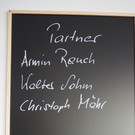 Partner
Armin Rauch
Walter Sohm
Christoph Mähr